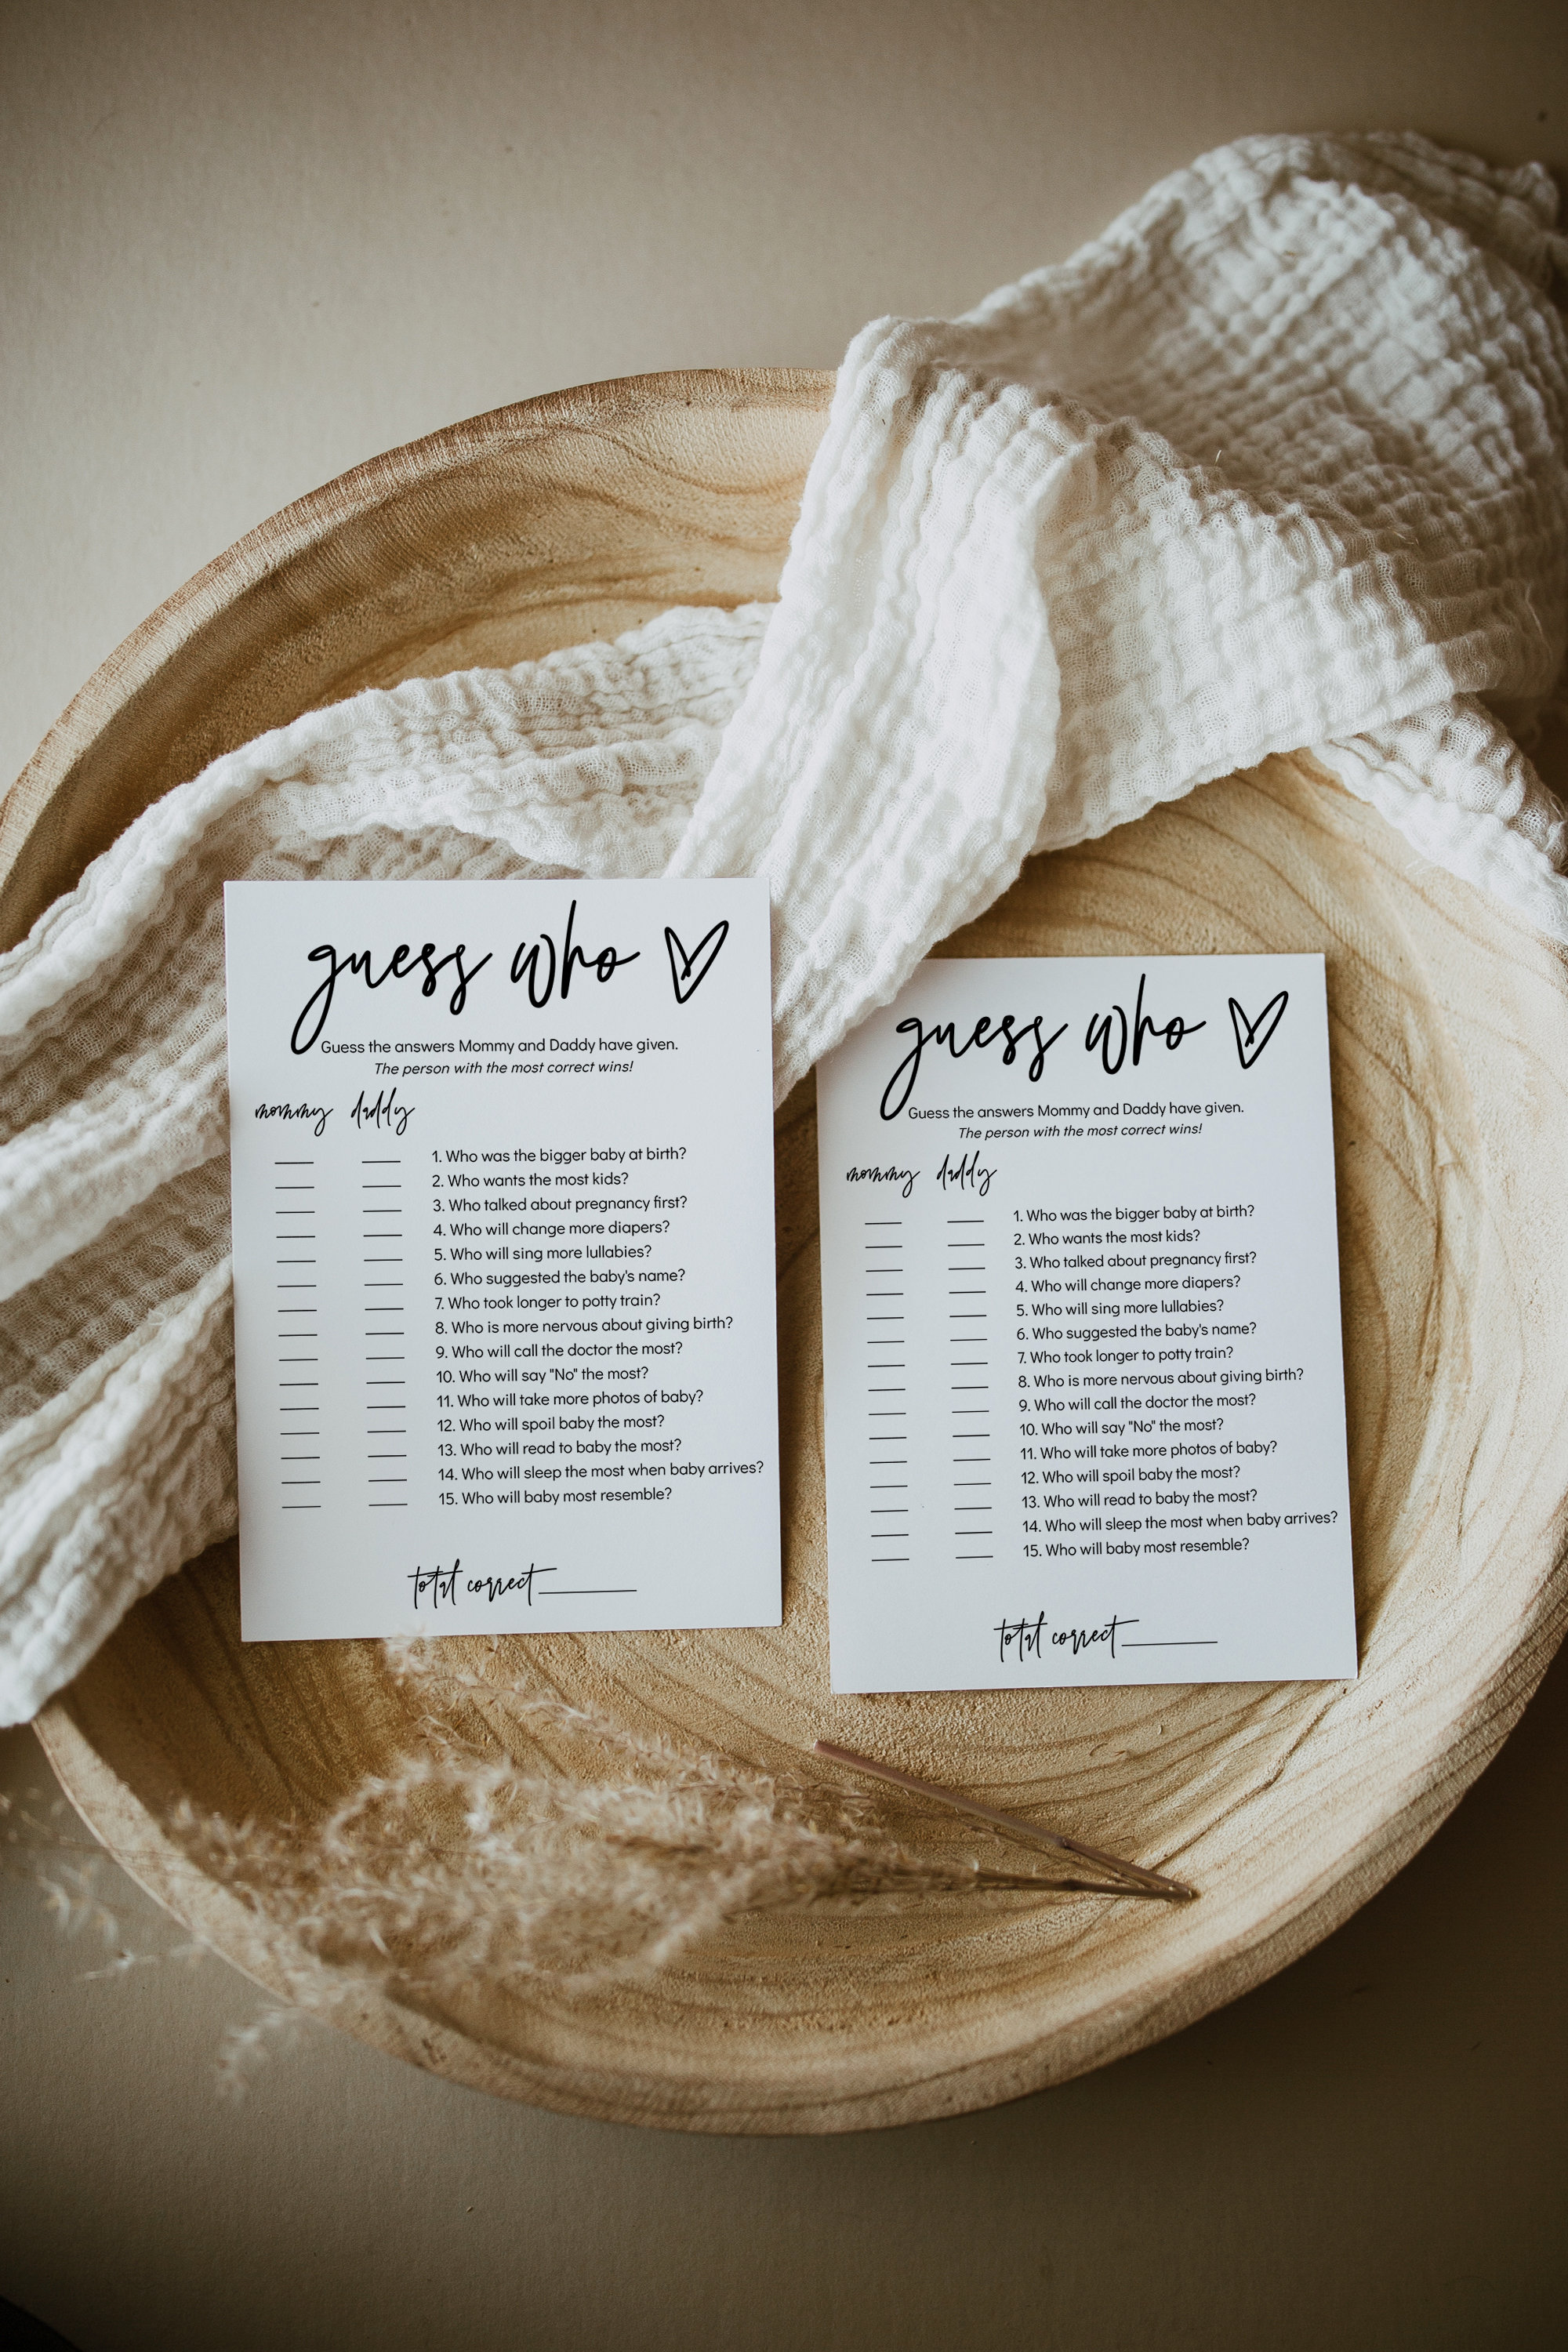 guess who
Guess the answers Mommy and Daddy have given.
The person with the most correct wins!
mommy daddy
1. Who was the bigger baby at birth?
2. Who wants the most kids?
3. Who talked about pregnancy first?
4. Who will change more diapers?
5. Who will sing more lullabies?
6. Who suggested the baby's name?
7. Who took longer to potty train?
8. Who is more nervous about giving birth?
9. Who will call the doctor the most?
10. Who will say "No" the most?
11. Who will take more photos of baby?
12. Who will spoil baby the most?
13. Who will read to baby the most?
14. Who will sleep the most when baby arrives?
15. Who will baby most resemble?
total correct
guess who
Guess the answers Mommy and Daddy have given.
The person with the most correct wins!
mommy daddy
1. Who was the bigger baby at birth?
2. Who wants the most kids?
3. Who talked about pregnancy first?
4. Who will change more diapers?
5. Who will sing more lullabies?
6. Who suggested the baby's name?
7. Who took longer to potty train?
8. Who is more nervous about giving birth?
9. Who will call the doctor the most?
10. Who will say "No" the most?
11. Who will take more photos of baby?
12. Who will spoil baby the most?
13. Who will read to baby the most?
14. Who will sleep the most when baby arrives?
15. Who will baby most resemble?
total correct